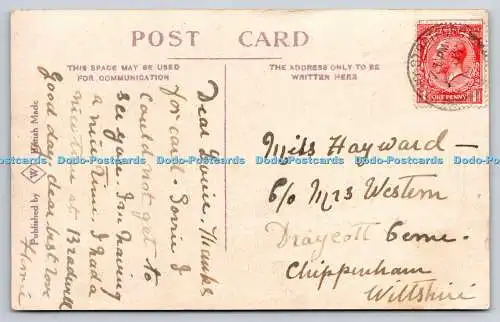 POST CARD
THIS SPACE MAY BE USED
FOR COMMUNICATION
THE ADDRESS ONLY TO BE
WRITTEN HERE
Published by
British Made
Dear Thanks
for card. Sorrie I
could not get to
see you. I'm having
a nice time. I had a
nice time at Bradwell
Good day dear best love
Miss Hayward —
C/o Mrs Western
Draycott Cerne
Chippenham
Wiltshire
ONE PENNY
Dodo-Postcards Dodo-Postcards Dodo-Postcards Dodo-Postcards Dodo-Postcards Dodo-Postcards